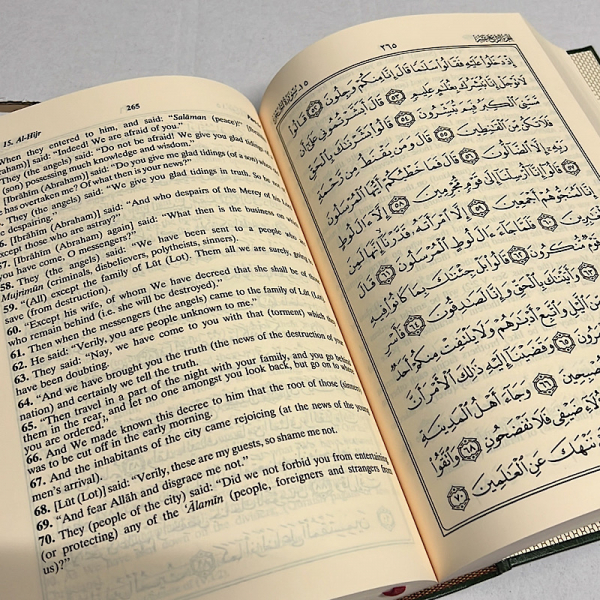 265
15. Al-Hijr
When they entered to him, and said: "Salâman (peace)!"
said: "Indeed! We are afraid of you."
They (the angels) said: "Do not be afraid! We give you glad tidings of a
(son) possessing much knowledge and wisdom."
[Ibrâhîm (Abraham)] said: "Do you give me glad tidings (of a son) when
has overtaken me? Of what then is your news?"
They (the angels) said: "We give you glad tidings in truth. So be not
despairing."
[Ibrâhîm (Abraham)] said: "And who despairs of the Mercy of his
except those who are astray?"
57. [Ibrâhîm (Abraham) again] said: "What then is the business on
you have come, O messengers?"
58. They (the angels) said: "We have been sent to a people who
Mujrimûn (criminals, disbelievers, polytheists, sinners).
59. "(All) except the family of Lût (Lot). Them all we are surely, going
save (from destruction).
60. "Except his wife, of whom We have decreed that she shall be of
who remain behind (i.e. she will be destroyed)."
61. Then when the messengers (the angels) came to the family of Lût (Lot),
62. He said: "Verily, you are people unknown to me."
63. They said: "Nay, we have come to you with that (torment) which they
have been doubting.
64. "And we have brought you the truth (the news of the destruction of your
nation) and certainly we tell the truth.
65. "Then travel in a part of the night with your family, and you go behind
them in the rear, and let no one amongst you look back, but go on to where
you are ordered."
66. And We made known this decree to him that the root of those (sinners)
was to be cut off in the early morning.
67. And the inhabitants of the city came rejoicing (at the news of the young
men's arrival).
68. [Lût (Lot)] said: "Verily, these are my guests, so shame me not.
69. "And fear Allâh and disgrace me not."
70. They (people of the city) said: "Did we not forbid you from entertaining
(or protecting) any of the 'Âlamîn (people, foreigners and strangers from
us)?"
٢٦٥
إِذْ دَخَلُوا عَلَيْهِ فَقَالُوا سَلَامًا قَالَ إِنَّا مِنكُمْ وَجِلُونَ ٥٢ قَالُوا
لَا تَوْجَلْ إِنَّا نُبَشِّرُكَ بِغُلَامٍ عَلِيمٍ ٥٣ قَالَ أَبَشَّرْتُمُونِي عَلَىٰ أَن
مَّسَّنِيَ الْكِبَرُ فَبِمَ تُبَشِّرُونَ ٥٤ قَالُوا بَشَّرْنَاكَ بِالْحَقِّ
فَلَا تَكُن مِّنَ الْقَانِطِينَ ٥٥ قَالَ وَمَن يَقْنَطُ مِن رَّحْمَةِ
رَبِّهِ إِلَّا الضَّالُّونَ ٥٦ قَالَ فَمَا خَطْبُكُمْ أَيُّهَا الْمُرْسَلُونَ
٥٧ قَالُوا إِنَّا أُرْسِلْنَا إِلَىٰ قَوْمٍ مُّجْرِمِينَ ٥٨ إِلَّا آلَ لُوطٍ
إِنَّا لَمُنَجُّوهُمْ أَجْمَعِينَ ٥٩ إِلَّا امْرَأَتَهُ قَدَّرْنَا إِنَّهَا لَمِنَ
الْغَابِرِينَ ٦٠ فَلَمَّا جَاءَ آلَ لُوطٍ الْمُرْسَلُونَ ٦١ قَالَ
قَوْمٌ مُّنكَرُونَ ٦٢ قَالُوا بَلْ جِئْنَاكَ بِمَا كَانُوا فِيهِ
٦٣ وَأَتَيْنَاكَ بِالْحَقِّ وَإِنَّا لَصَادِقُونَ ٦٤ فَأَسْرِ
مِّنَ اللَّيْلِ وَاتَّبِعْ أَدْبَارَهُمْ وَلَا يَلْتَفِتْ مِنكُمْ أَحَدٌ
٦٥ وَقَضَيْنَا إِلَيْهِ ذَٰلِكَ الْأَمْرَ أَنَّ
مُّصْبِحِينَ ٦٦ وَجَاءَ أَهْلُ الْمَدِينَةِ
ضَيْفِي فَلَا تَفْضَحُونِ ٦٨ وَاتَّقُوا
نَنْهَكَ عَنِ الْعَالَمِينَ ٧٠